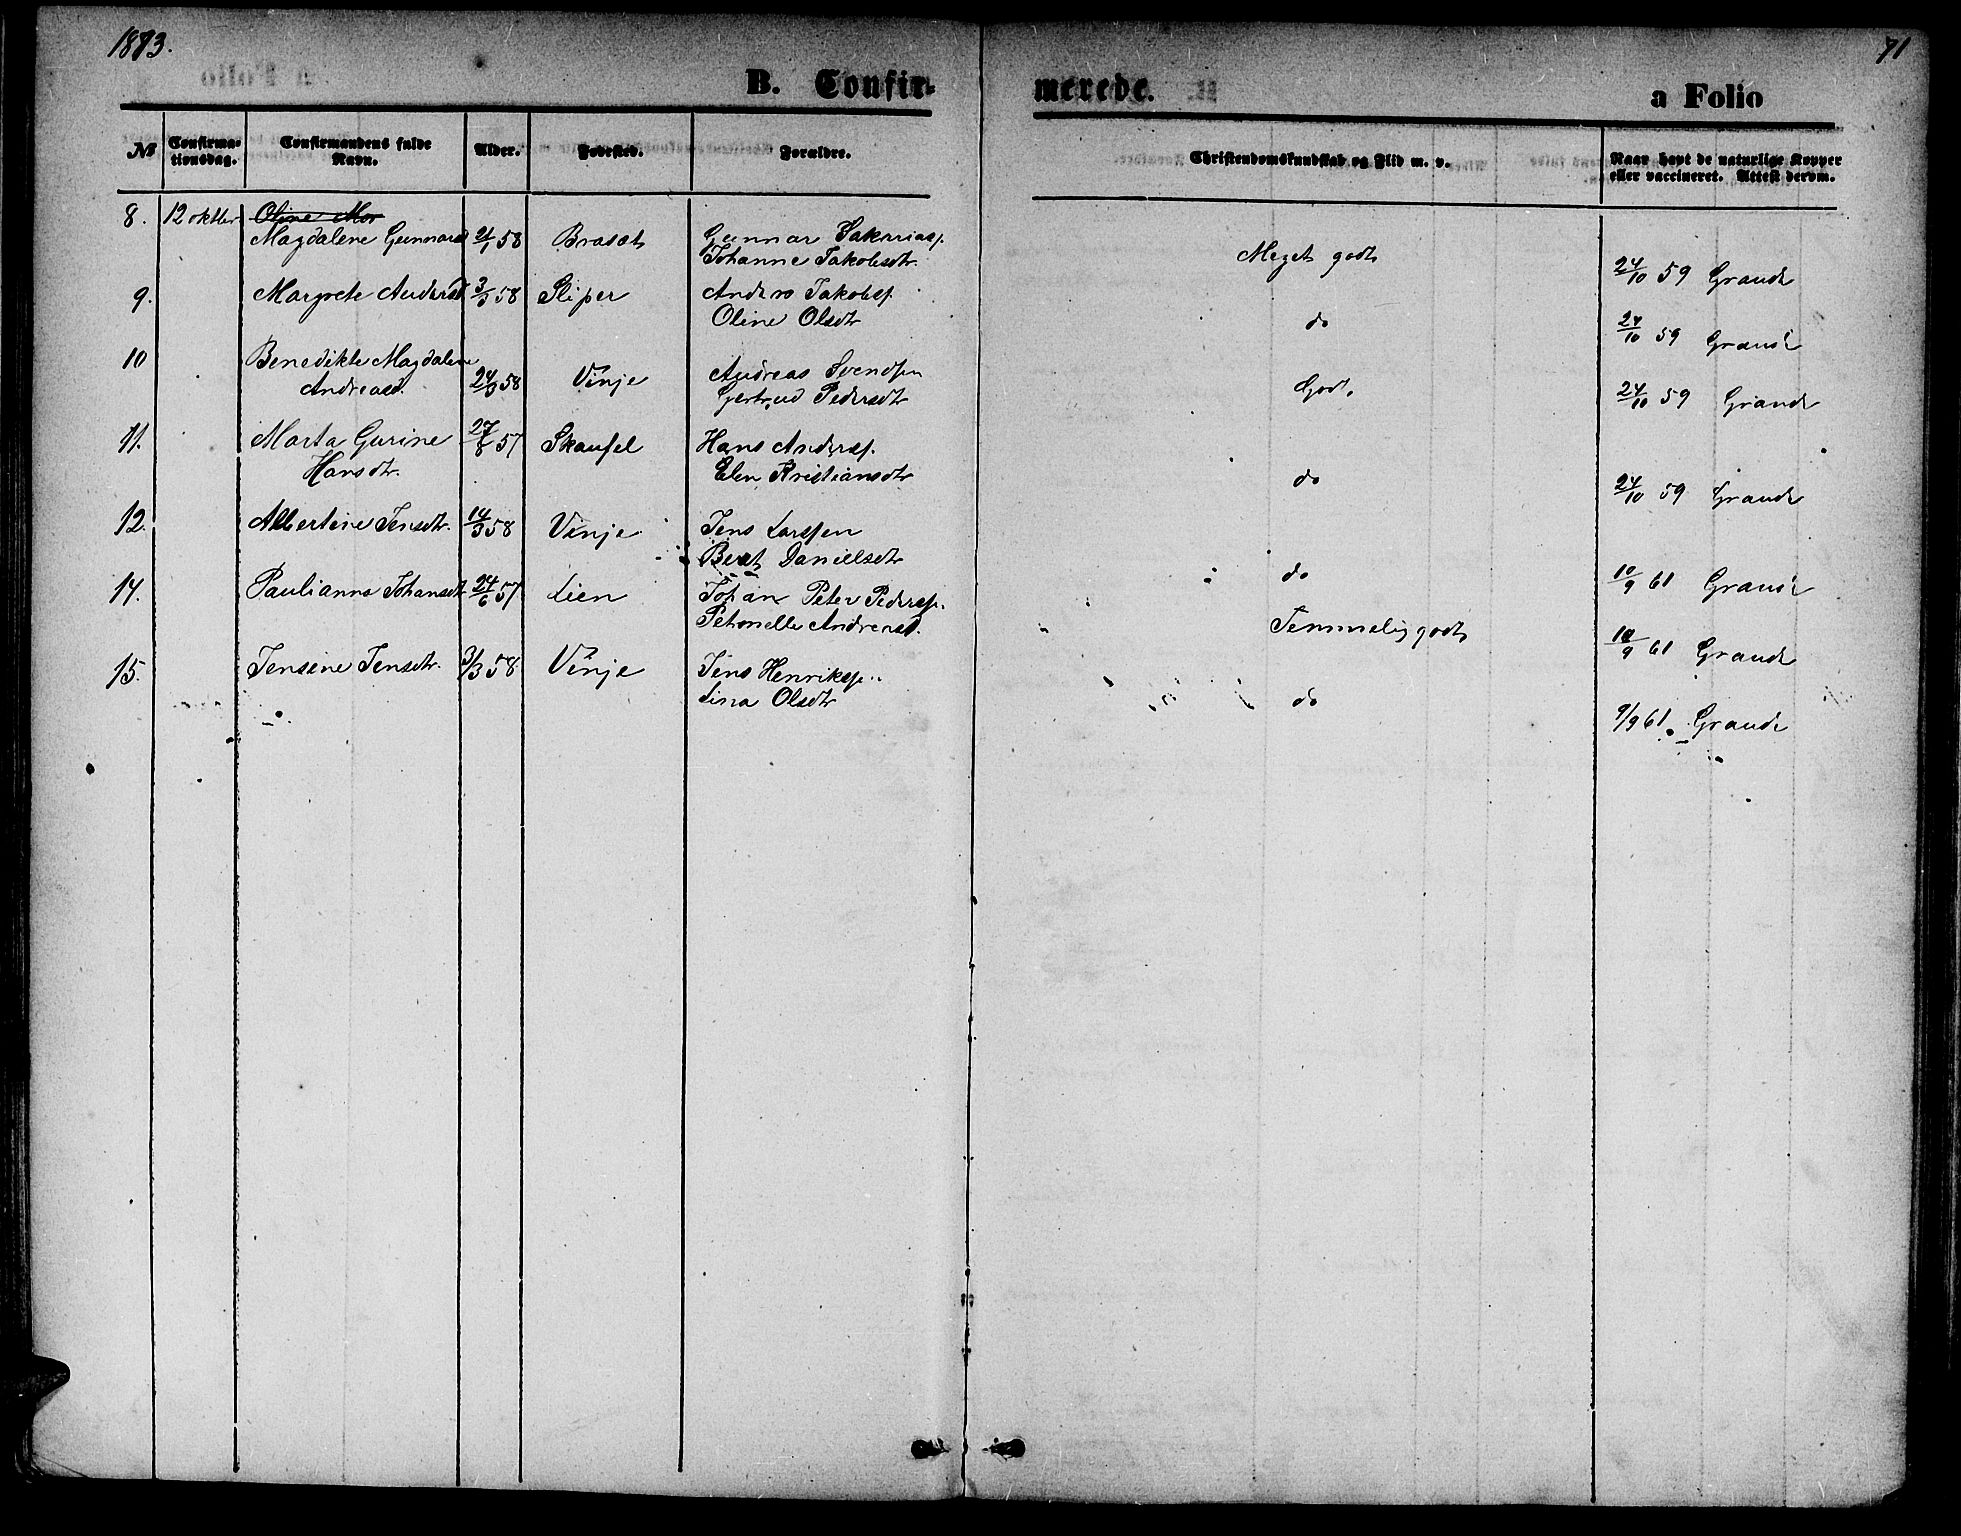 1873.
71
B. Confir-
merede.
a Folio
№
Confirma-
tionsdag.
Confirmandens fulde
Navn.
Alder.
Fødested.
Forældre.
Christendomskundskab og Flid m. v.
Naar havt de naturlige Kopper
eller vaccineret. Attest derom.
8. 12 oktber Oline Mar
Magdalene Gunnarsd 21/1 58 Brasæt Gunnar Sakariass.
Johanne Jakobsdtr. Meget godt 24/10 59 Grande
9. Margrete Andersd 3/3 58 Sliper Anders Jakobss.
Oline Olsdtr do 24/10 59 Grande
10 Benedikte Magdalene
Andreasd. 24/3 58 Vinje Andreas Svendsen
Gertrud Pedersdtr Godt. 24/10 59 Grande
11. Marta Gurine 27/8 57 Skaufel Hans Anderss.
Hansdtr. Elen Kristiansdtr do 24/10 59 Grande
12. Albertine Jensdtr. 14/3 58 Vinje Jens Larssen
Beret Danielsdtr do 10/9 61 Grande
14. Paulianna Johansdt 24/6 57 Lien Johan Peter Peders.
Petronelle Andreasd. Temmelig godt 10/9 61 Grande
15. Jensine Jensdtr. 3/3 58 Vinje Jens Henrikss.
Lina Olsdtr do 9/9 61 Grande